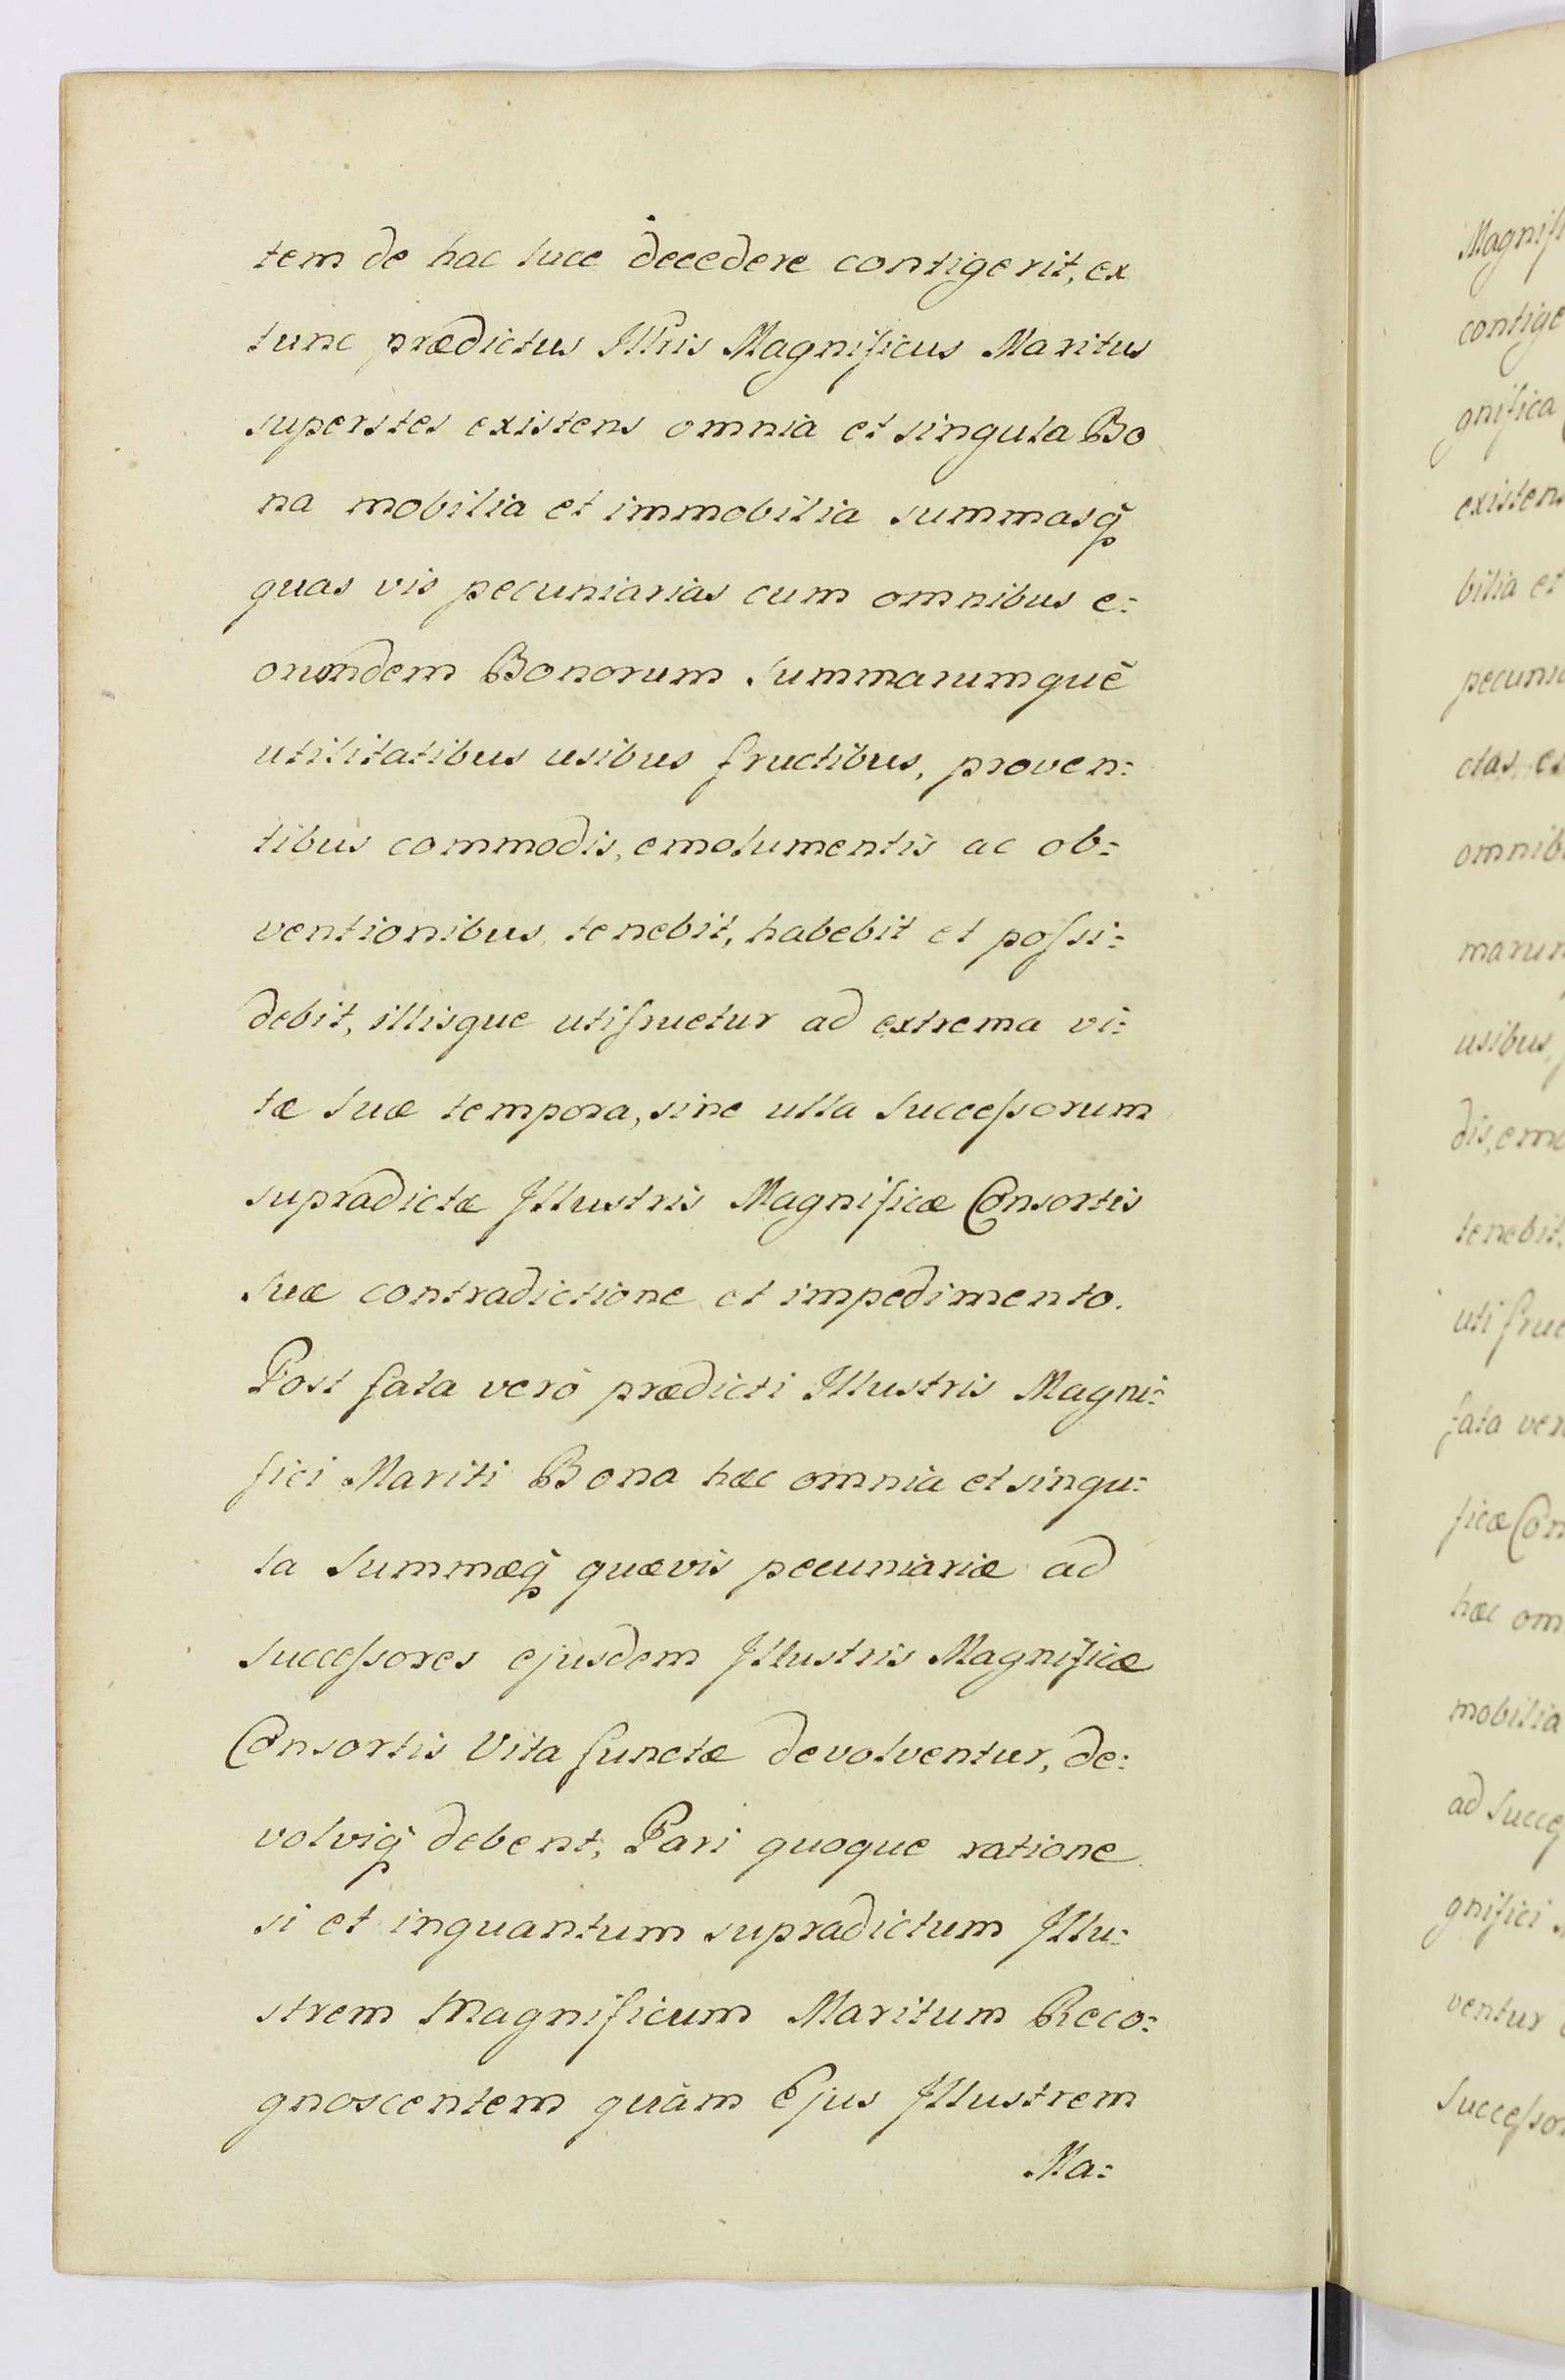 tem de hac luce decedere contigerit, ex
tunc prædictus Illris Magnificus Maritus
superstes existens omnia et singula Bo
na mobilia et immobilia summasq̃
quas vis pecuniarias cum omnibus e:
orumdem Bonorum Summarumquè
utilitatibus usibus fructibus, proven:
tibus commodis, emolumentis ac ob:
ventionibus, tenebit, habebit et poſsi:
debit, illisque utifruetur ad extrema vi:
tæ Suæ tempora, sine ulla Succeſsorum
supradictæ Illustris Magnificæ Consortis
Suæ contradictione et impedimento.
Post fata verò prædicti Illustris Magni:
fici Mariti Bona hæc omnia et singu:
la Summæq̃ quævis pecuniariæ ad
Succeſsores ejusdem Illustris Magnificæ
Consortis Vita functæ devolventur, de:
volviq̃ debent, Pari quoque ratione
si et inquantum supradictum Illu:
strem Magnificum Maritum Reco:
gnoscentem quàm Ejus Illustrem
Ma:
Magnifi
contige
gnifica
existens
bilia et
pecunia
ctas, ex
omnib
marum
usibus,
dis, emo
tenebit,
uti frue
fata ver
ficæ Con
hæc om
mobilia
ad Succeſ
gnifici
ventur
Succeſso